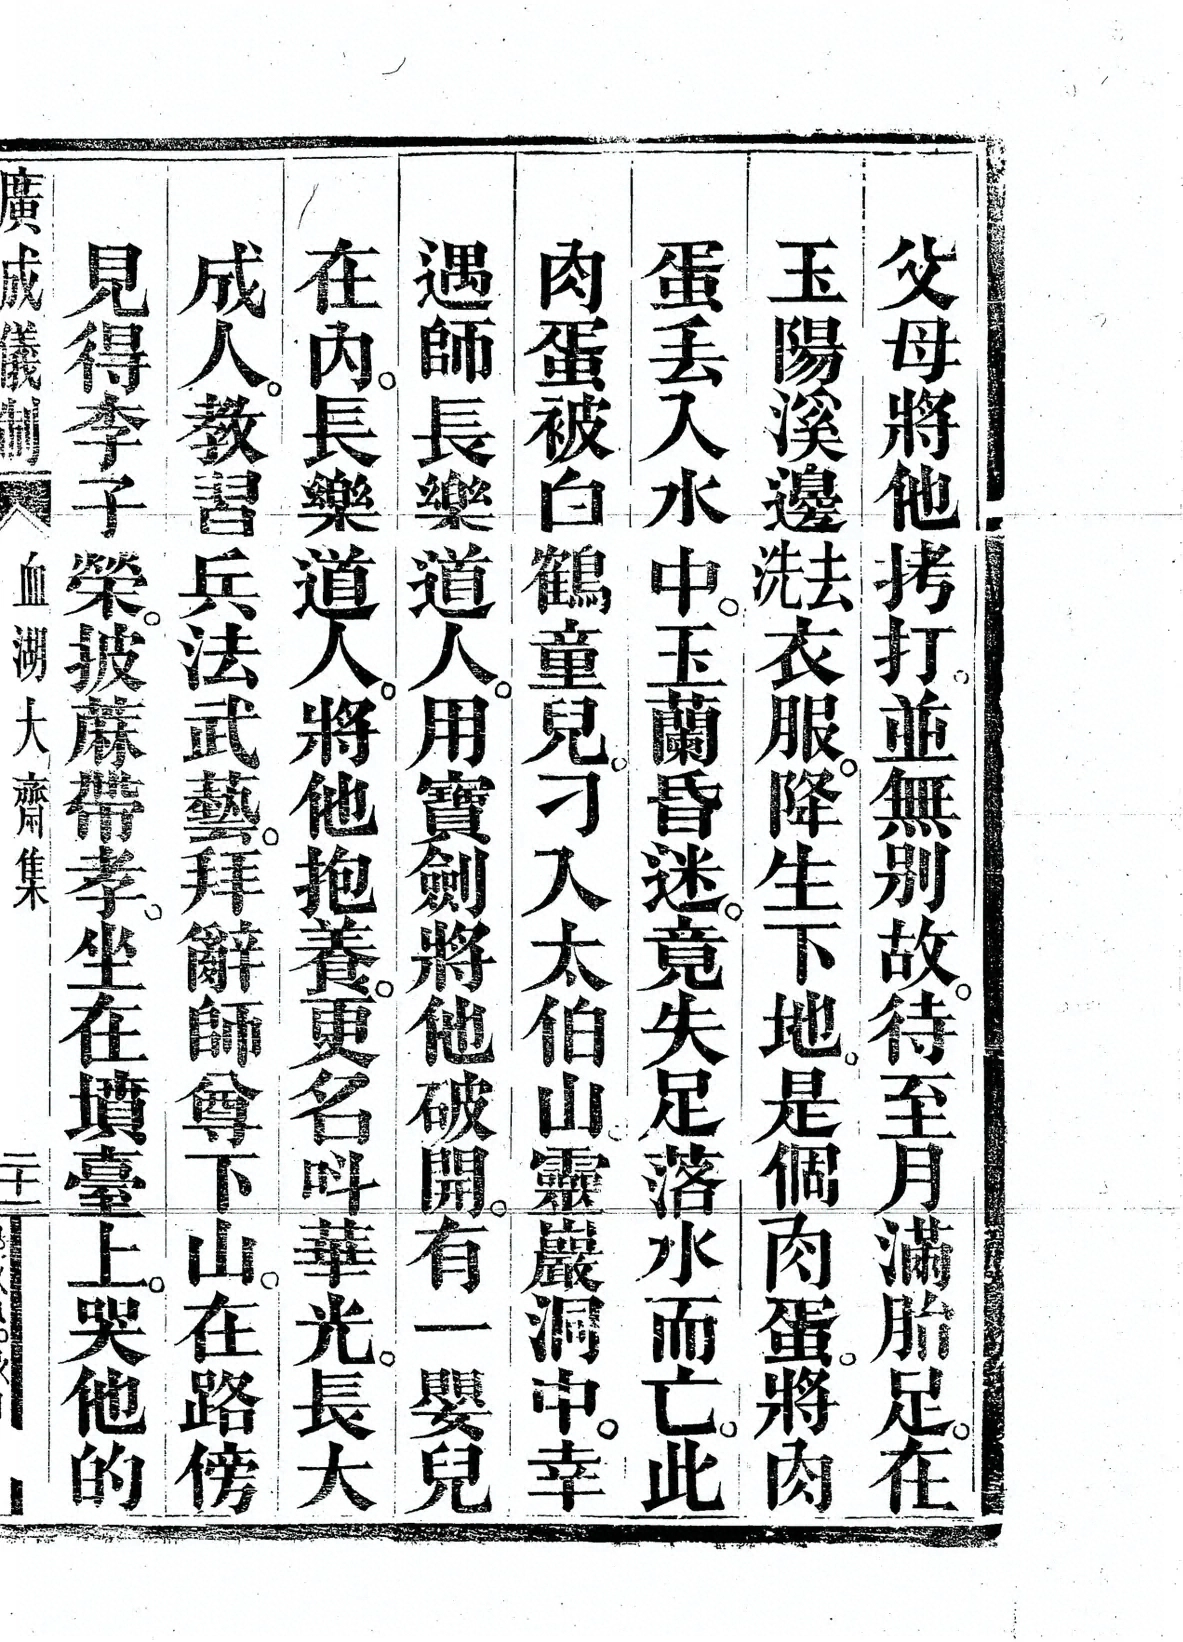 父母將他拷打。並無別故。待至月滿胎足。在
玉陽溪邊洗去衣服。降生下地。是個肉蛋。將肉
蛋丟入水中。玉蘭昏迷。竟失足落水而亡。此
肉蛋被白鶴童兒。刁入太伯山。靈巖洞中。幸
遇師長樂道人。用寶劍將他破開。有一嬰兒
在內。長樂道人。將他抱養。更名呌華光。長大
成人。教習兵法武藝。拜辭師尊下山。在路傍
見得李子榮。披蔴帶孝。坐在墳臺上。哭他的
廣成儀制 血湖大齋集 二十一